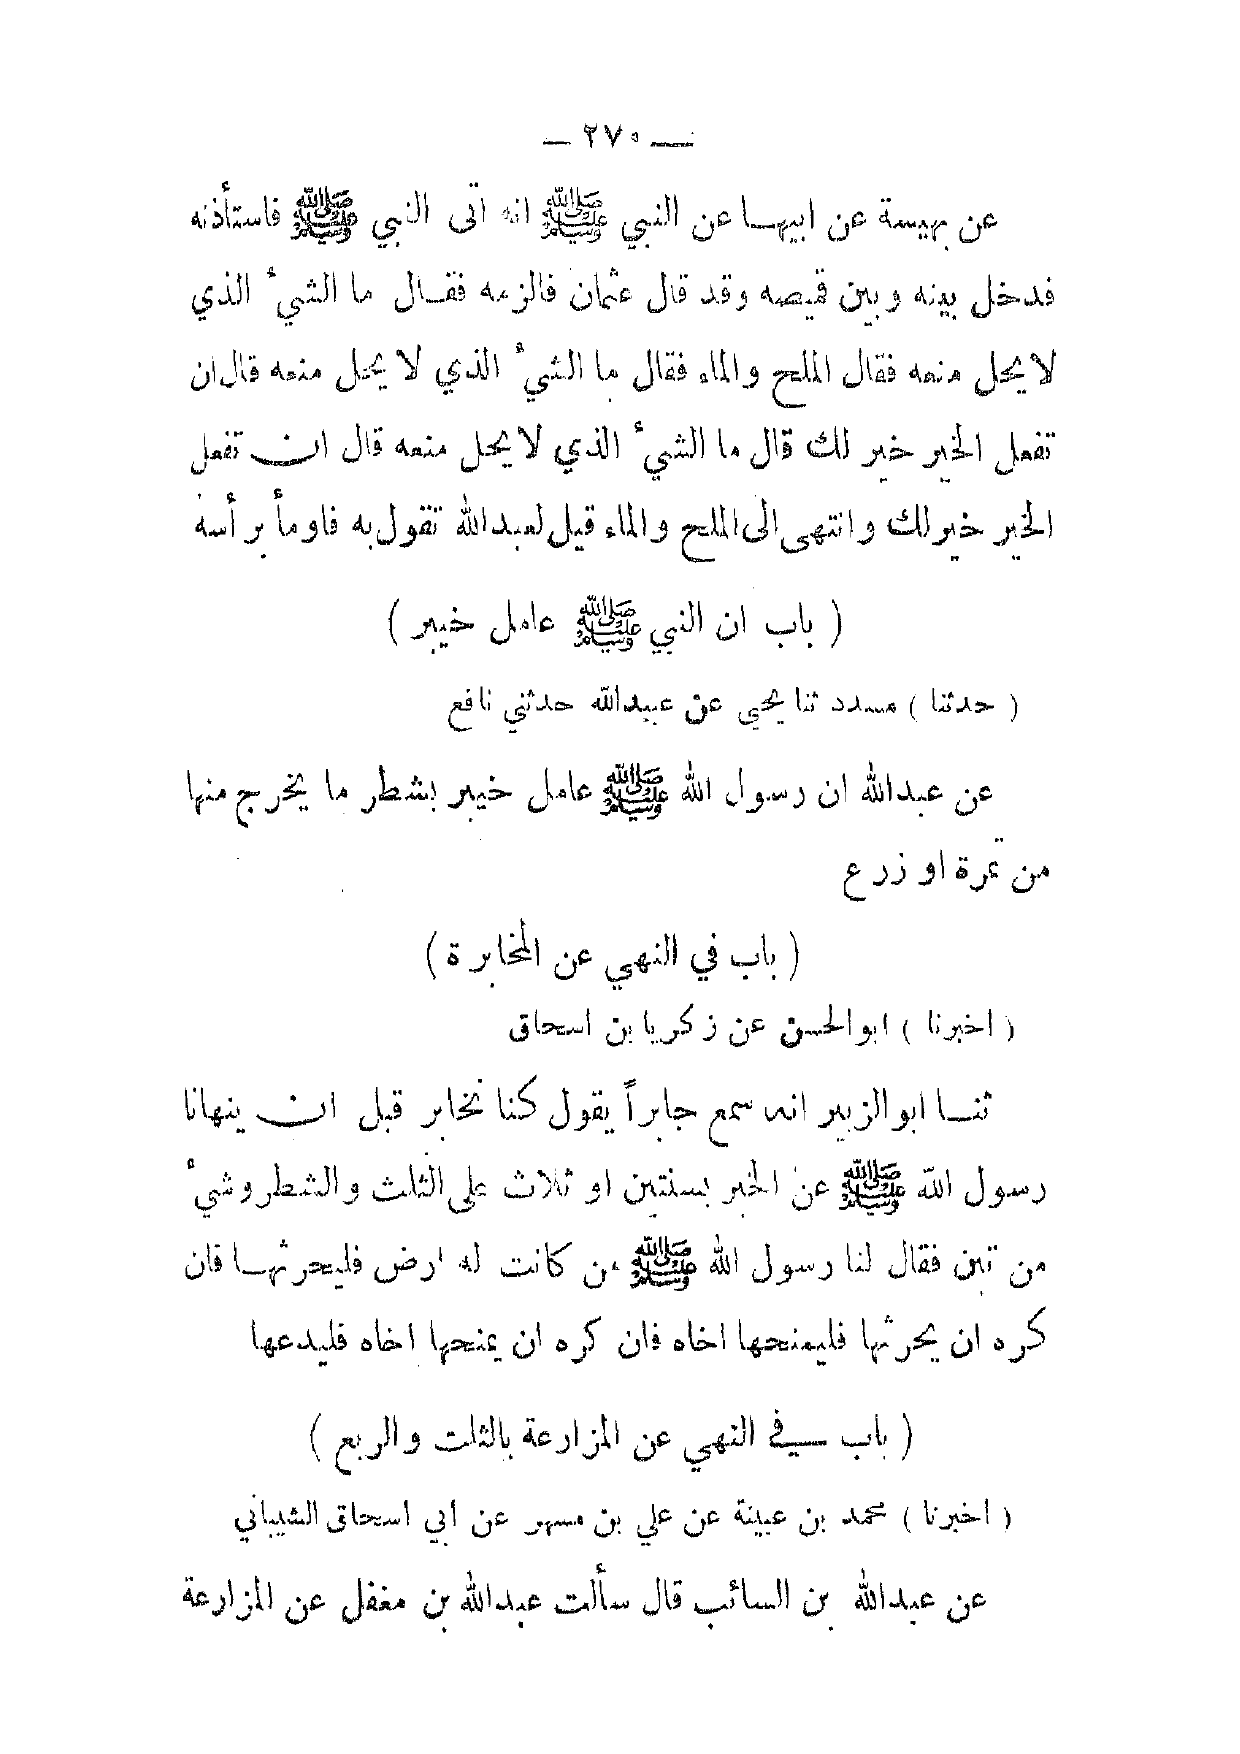 — ٢٧٠ —
عن بهيسة عن ابيها عن النبي ﷺ انه اتى النبي ﷺ فاستأذنه
فدخل بينه وبين قميصه وقد قال عثمان فالزمه فقال ما الشيء الذي
لا يحل منعه فقال الملح والماء فقال ما الشيء الذي لا يحل منعه قال ان
تفعل الخير خير لك قال ما الشيء الذي لا يحل منعه قال ان تفعل
الخير خير لك وانتهى الى الملح والماء قيل لعبدالله تقول به فاومأ برأسه
( باب ان النبي ﷺ عامل خيبر )
( حدثنا ) مسدد ثنا يحيى عن عبيدالله حدثني نافع
عن عبدالله ان رسول الله ﷺ عامل خيبر بشطر ما يخرج منها
من ثمرة او زرع
( باب في النهي عن المخابرة )
( اخبرنا ) ابوالحسن عن زكريا بن اسحاق
ثنا ابوالزبير انه سمع جابراً يقول كنا نخابر قبل ان ينهانا
رسول الله ﷺ عن الخبر بسنتين او ثلاث على الثلث والشطر وشيء
من تبن فقال لنا رسول الله ﷺ من كانت له ارض فليحرثها فان
كره ان يحرثها فليمنحها اخاه فان كره ان يمنحها اخاه فليدعها
( باب في النهي عن المزارعة بالثلث والربع )
( اخبرنا ) محمد بن عيينة عن علي بن مسهر عن ابي اسحاق الشيباني
عن عبدالله بن السائب قال سألت عبدالله بن مغفل عن المزارعة